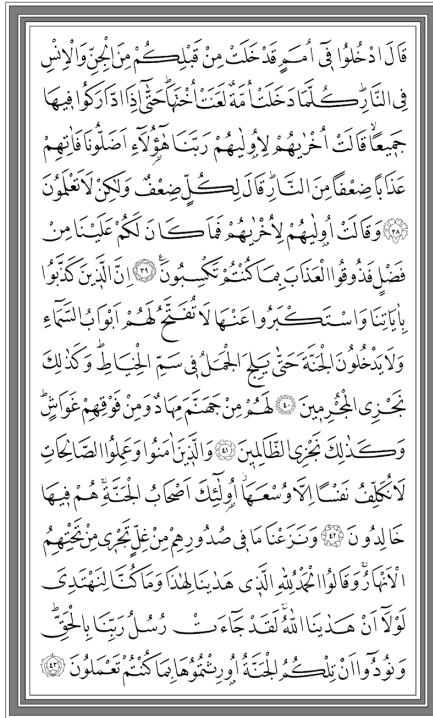 قَالَ ادْخُلُوا فٖٓى اُمَمٍ قَدْ خَلَتْ مِنْ قَبْلِكُمْ مِنَ الْجِنِّ وَالْاِنْسِ
فِى النَّارِؕ كُلَّمَا دَخَلَتْ اُمَّةٌ لَعَنَتْ اُخْتَهَاؕ حَتّٰٓى اِذَا ادَّارَكُوا فٖيهَا
جَمٖيعًاۙ قَالَتْ اُخْرٰيهُمْ لِاُو۫لٰيهُمْ رَبَّنَا هٰٓؤُ۬لَٓاءِ اَضَلُّونَا فَاٰتِهِمْ
عَذَابًا ضِعْفًا مِنَ النَّارِؕ قَالَ لِكُلٍّ ضِعْفٌ وَلٰكِنْ لَا تَعْلَمُونَ
﴿٣٨﴾ وَقَالَتْ اُو۫لٰيهُمْ لِاُخْرٰيهُمْ فَمَا كَانَ لَكُمْ عَلَيْنَا مِنْ
فَضْلٍ فَذُوقُوا الْعَذَابَ بِمَا كُنْتُمْ تَكْسِبُونَ۟ ﴿٣٩﴾ اِنَّ الَّذٖينَ كَذَّبُوا
بِاٰيَاتِنَا وَاسْتَكْبَرُوا عَنْهَا لَا تُفَتَّحُ لَهُمْ اَبْوَابُ السَّمَٓاءِ
وَلَا يَدْخُلُونَ الْجَنَّةَ حَتّٰى يَلِجَ الْجَمَلُ فٖى سَمِّ الْخِيَاطِؕ وَكَذٰلِكَ
نَجْزِى الْمُجْرِمٖينَ ﴿٤٠﴾ لَهُمْ مِنْ جَهَنَّمَ مِهَادٌ وَمِنْ فَوْقِهِمْ غَوَاشٍؕ
وَكَذٰلِكَ نَجْزِى الظَّالِمٖينَ ﴿٤١﴾ وَالَّذٖينَ اٰمَنُوا وَعَمِلُوا الصَّالِحَاتِ
لَا نُكَلِّفُ نَفْسًا اِلَّا وُسْعَهَاؗ اُو۬لٰٓئِكَ اَصْحَابُ الْجَنَّةِۚ هُمْ فٖيهَا
خَالِدُونَ ﴿٤٢﴾ وَنَزَعْنَا مَا فٖى صُدُورِهِمْ مِنْ غِلٍّ تَجْرٖى مِنْ تَحْتِهِمُ
الْاَنْهَارُۚ وَقَالُوا الْحَمْدُ لِلّٰهِ الَّذٖى هَدٰينَا لِهٰذَا وَمَا كُنَّا لِنَهْتَدِىَ
لَوْلَٓا اَنْ هَدٰينَا اللّٰهُۚ لَقَدْ جَٓاءَتْ رُسُلُ رَبِّنَا بِالْحَقِّؕ
وَنُودُٓوا اَنْ تِلْكُمُ الْجَنَّةُ اُو۫رِثْتُمُوهَا بِمَا كُنْتُمْ تَعْمَلُونَ ﴿٤٣﴾